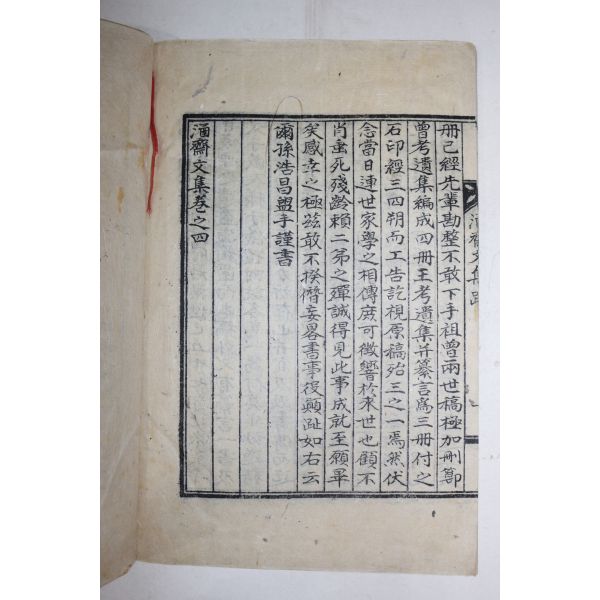 册已經先輩勘整不敢下手祖曾兩世稿極加刪節
曾考遺集編成四册王考遺集并纂言爲三册付之
石印經三四朔而工告訖視原稿殆三之一焉然伏
念當日連世家學之相傳庶可徵響於來世也顧不
肖垂死殘齡賴二弟之殫誠得見此事成就至願畢
矣感幸之極玆敢不揆僭妄畧書事役顚趾如右云
爾孫浩昌盥手謹書
齋文集卷之四
齋文集跋